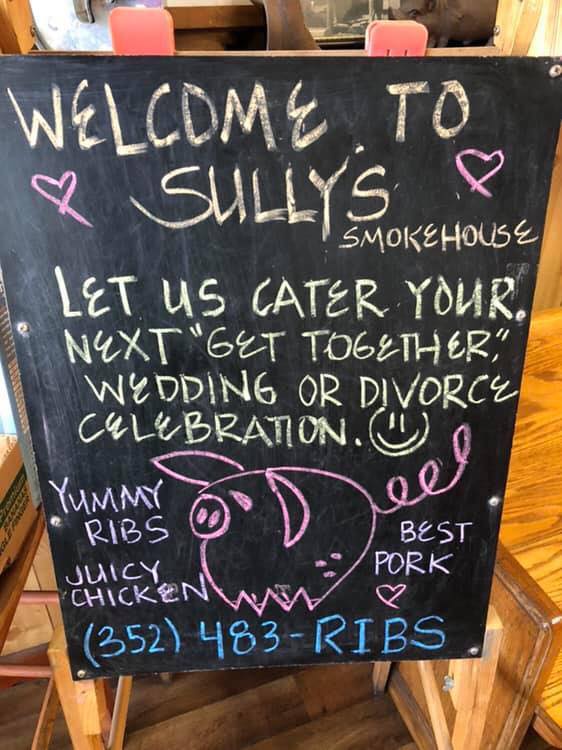 WELCOME TO
SULLY'S
SMOKEHOUSE
LET US CATER YOUR
NEXT "GET TOGETHER,"
WEDDING OR DIVORCE
CELEBRATION.
YUMMY
RIBS
JUICY
CHICKEN
BEST
PORK
(352) 483-RIBS